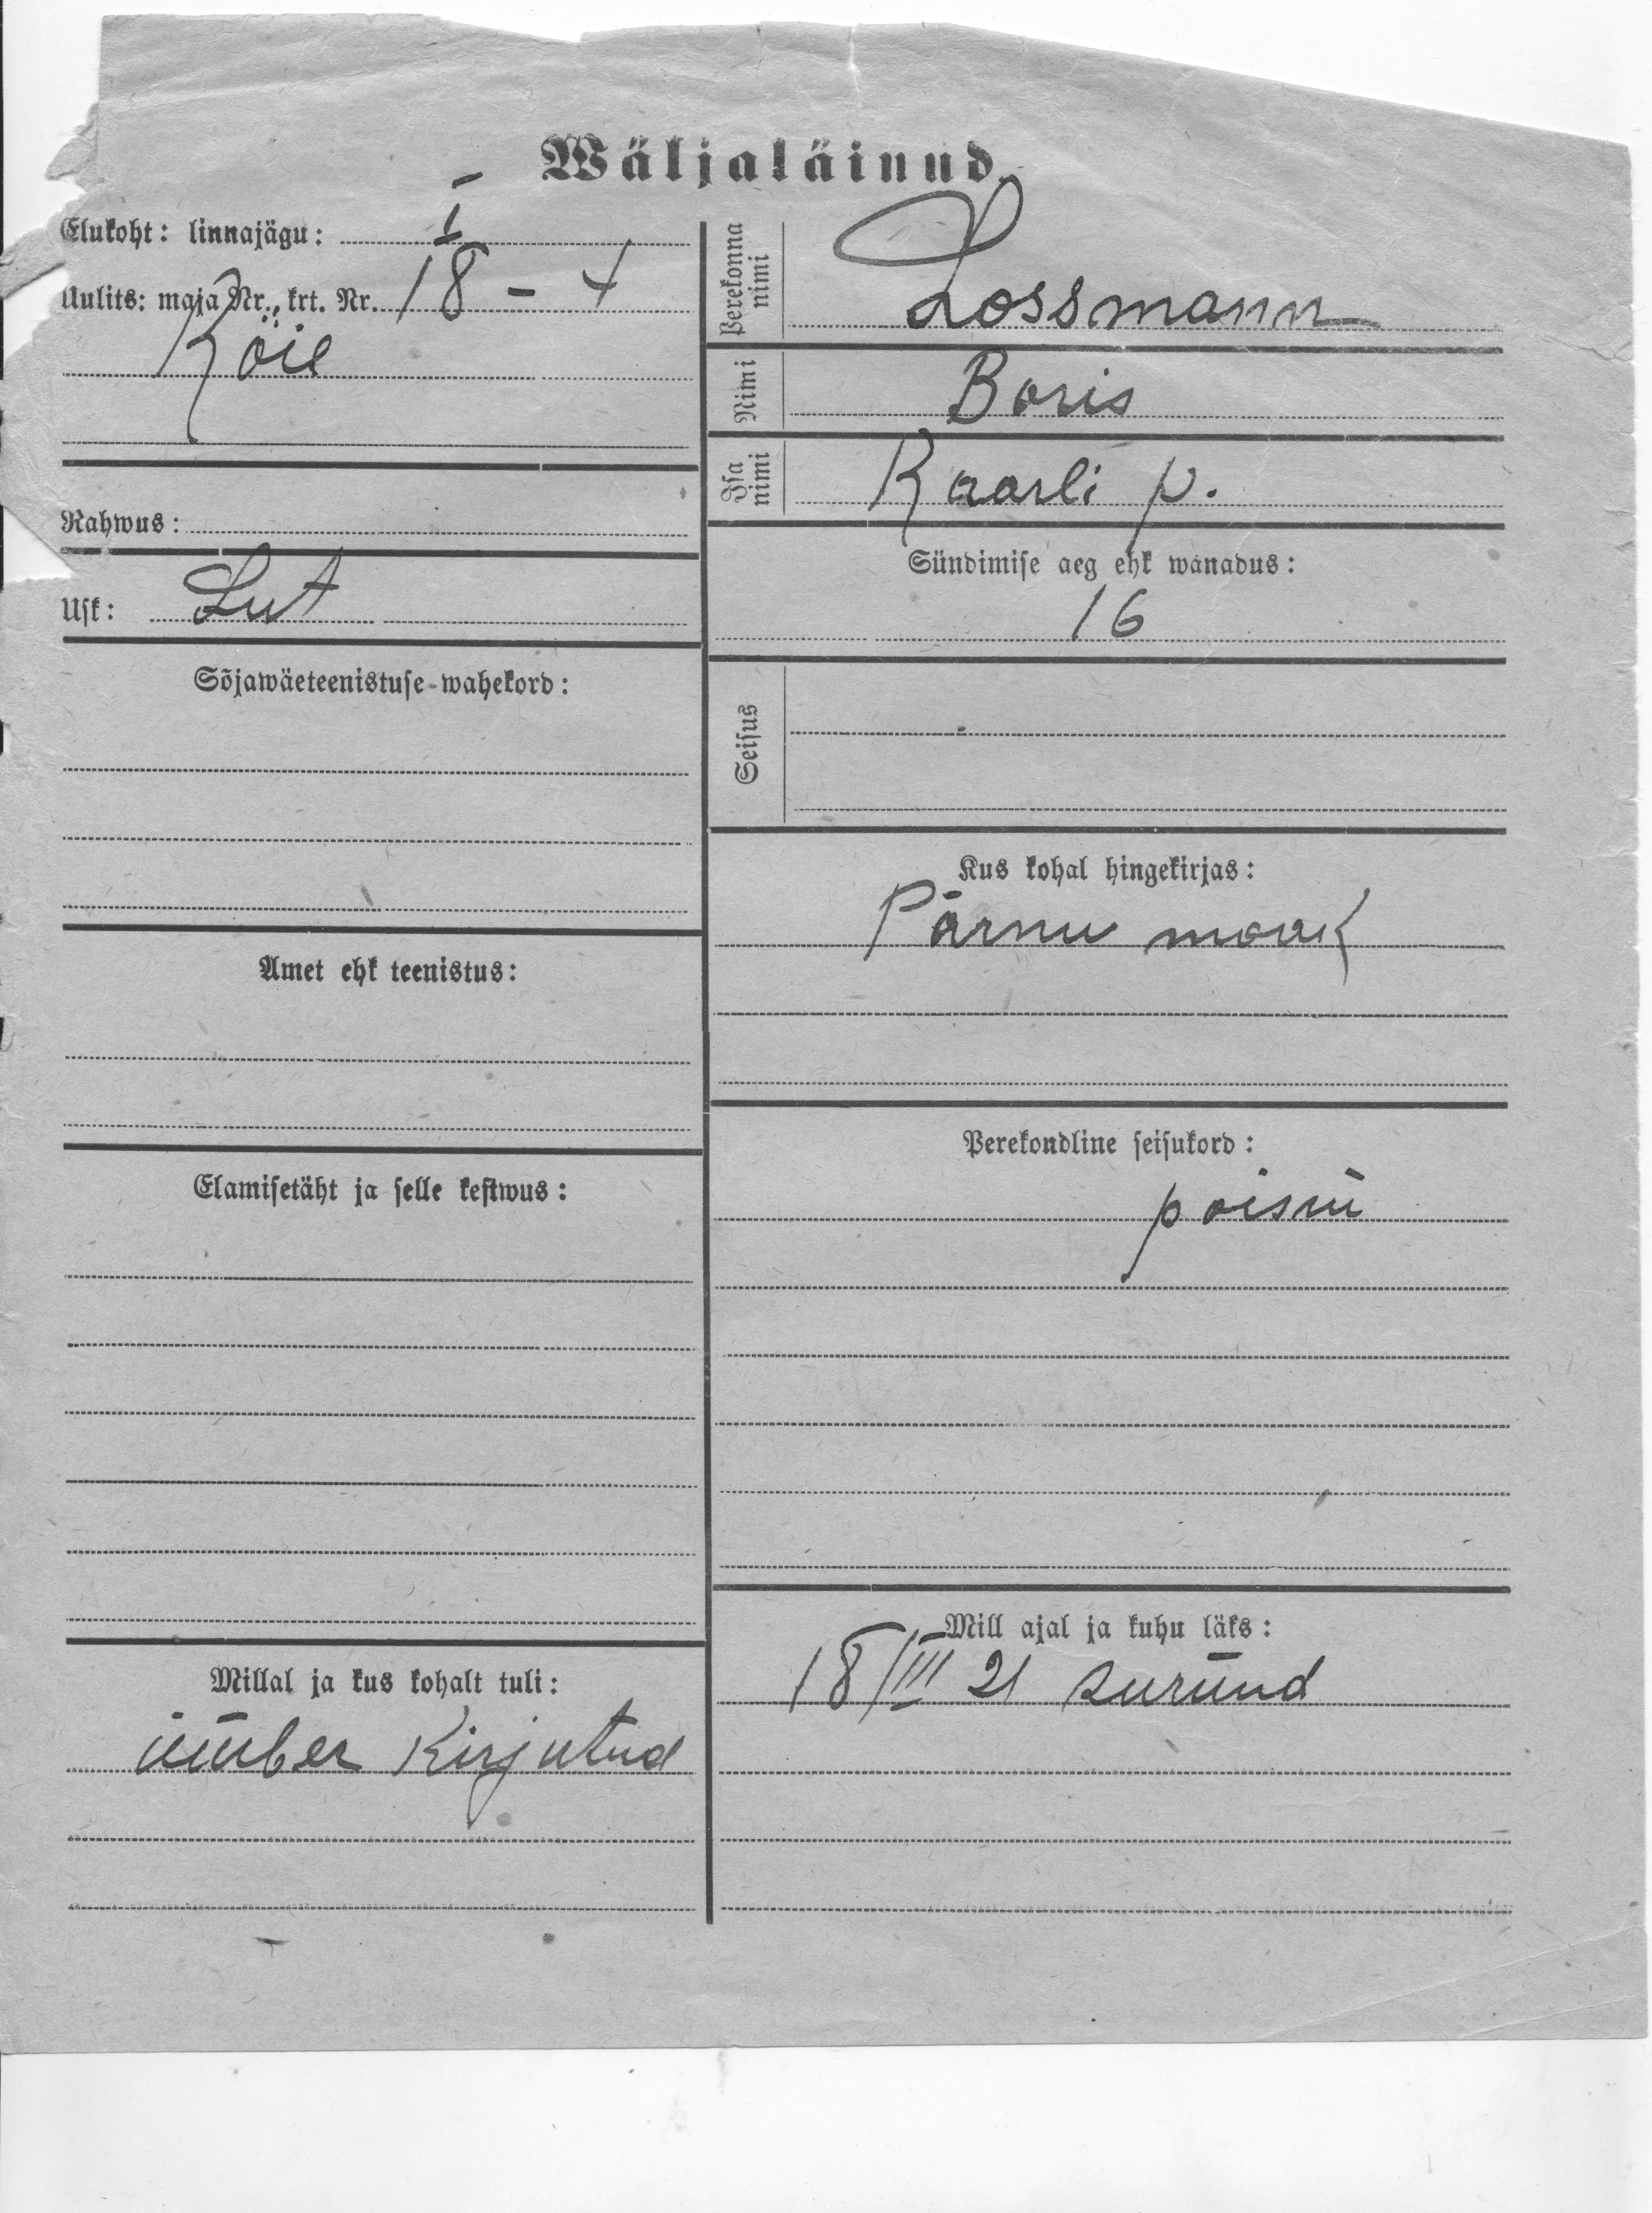 Wäljaläinud.
Elukoht: linnajägu: I
Uulits: maja Nr., krt. Nr. 18 - 4
Köie
Rahwus:
Usk: Lut
Sõjawäeteenistuse-wahekord:
Amet ehk teenistus:
Elamisetäht ja selle kestwus:
Millal ja kus kohalt tuli:
ümber kirjutud
Perekonna nimi Lossmann
Nimi Boris
Isa nimi Kaarli p.
Sündimise aeg ehk wanadus:
16
Seisus
Kus kohal hingekirjas:
Pärnu maak
Perekondline seisukord:
Mill ajal ja kuhu läks:
18/III 21 suründ